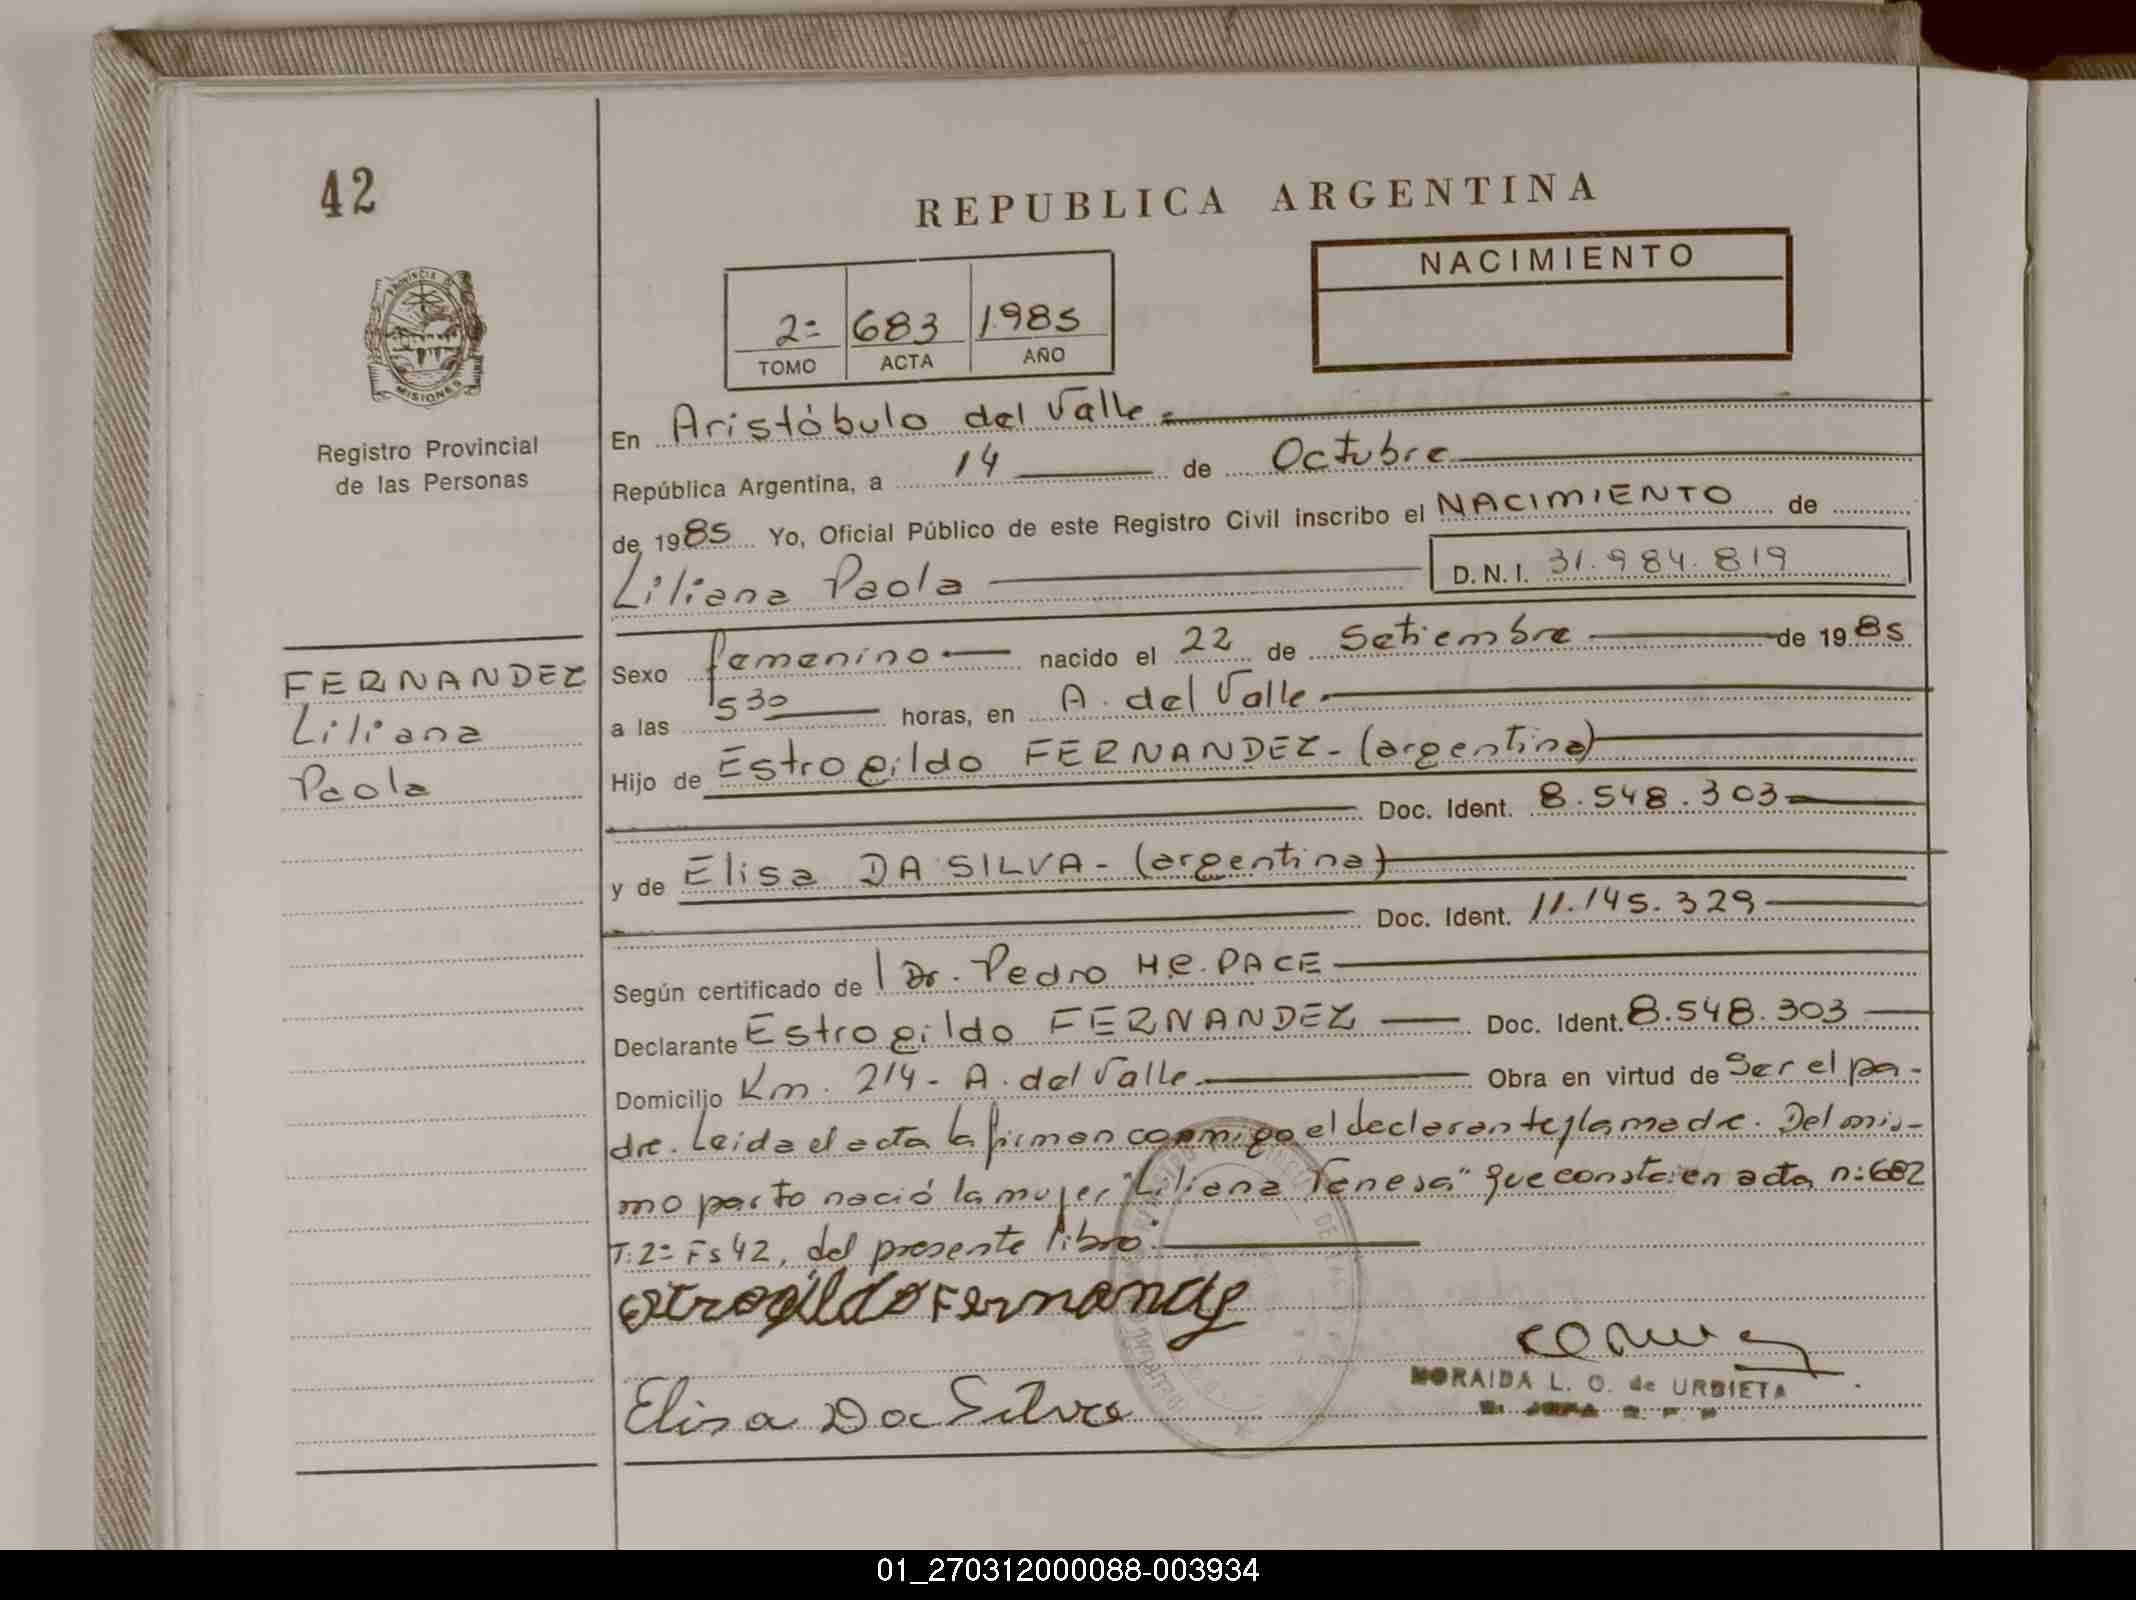 42
REPUBLICA ARGENTINA
NACIMIENTO
2= 683 1.985
TOMO ACTA AÑO
PROVINCIA DE MISIONES
Registro Provincial
de las Personas
En Aristóbulo del Valle
República Argentina, a 14 de Octubre
de 1985 Yo, Oficial Público de este Registro Civil inscribo el NACIMIENTO de
Liliana Paola D.N.I. 31.984.819
FERNANDEZ
Liliana
Paola
Sexo femenino nacido el 22 de Setiembre de 1985
a las 5 30 horas, en A. del Valle
Hijo de Estrogildo FERNANDEZ - (argentina)
Doc. Ident. 8.548.303
y de Elisa DA SILVA - (argentina)
Doc. Ident. 11.145.329
Según certificado de l Dr. Pedro H.C. PACE
Declarante Estrogildo FERNANDEZ Doc. Ident. 8.548.303
Domicilio Km. 214 - A. del Valle Obra en virtud de Ser el pa-
dre. Leida el acta la firman conmigo el declarante y la madre. Del mis-
mo parto nació la mujer "Liliana Teresa" que consta en acta n: 682
T: 2= Fs 42, del presente libro.
Estrogildo Fernandez
Elisa Da Silva
MORAIDA L. O. de URBIETA
01_270312000088-003934